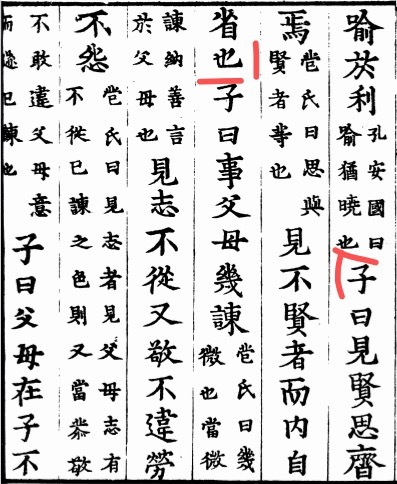 喻扵利孔安國曰喻猶曉也子曰見賢思齊
焉苞氏曰思與賢者等也見不賢者而内自
省也子曰事父母幾諫苞氏曰幾微也當微
諫納善言於父母也見志不從又敬不違勞
不怨苞氏曰見志者見父母志有不從已諫之色則又當恭敬
不敢違父母意而遂已諫也子曰父母在子不